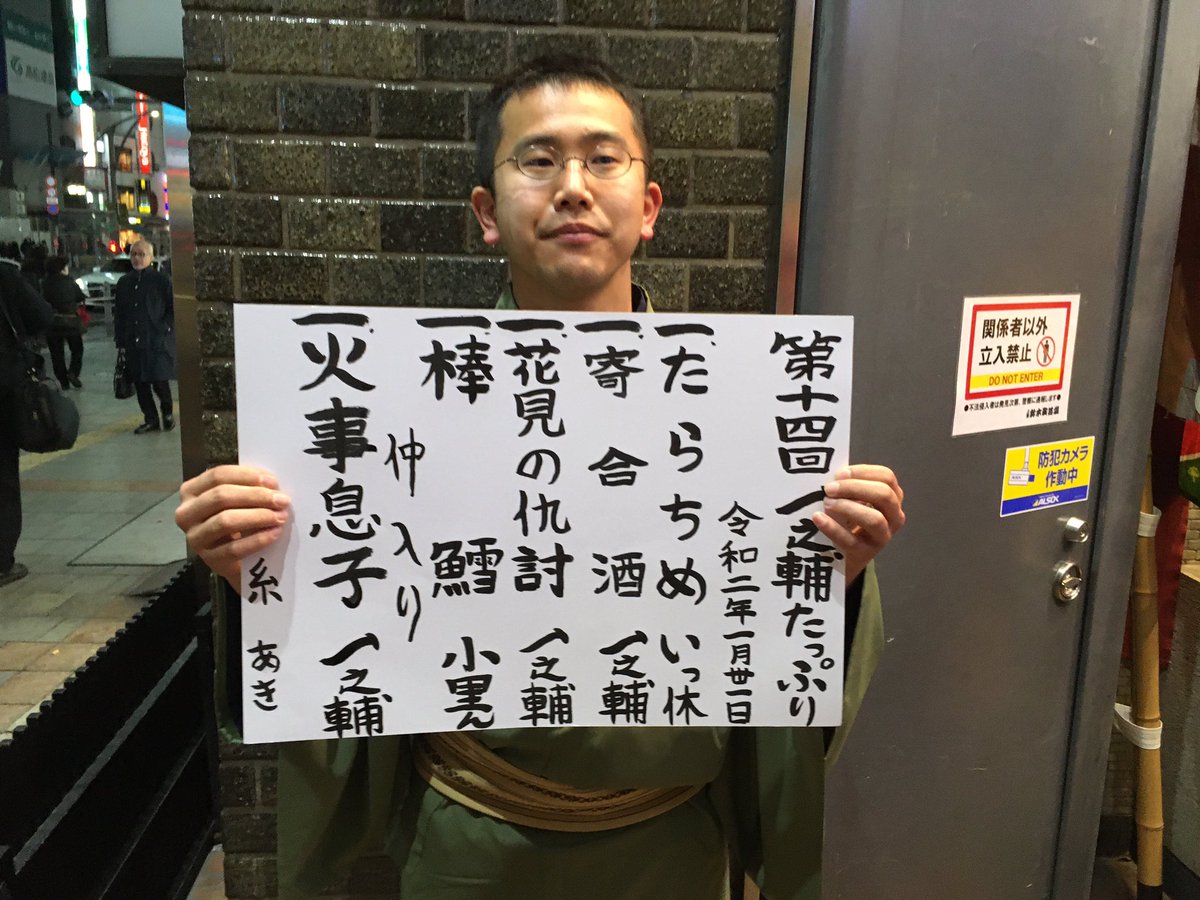 第十四回 一之輔たっぷり
令和二年一月卅一日
一、たらちめ いっ休
一、寄合酒 一之輔
一、花見の仇討 一之輔
一、棒鱈 小里ん
仲入り
一、火事息子 一之輔
糸 あき
関係者以外
立入禁止
DO NOT ENTER
●不法侵入者は発見次第、警察に通報します●
防犯カメラ
作動中
ALSOK